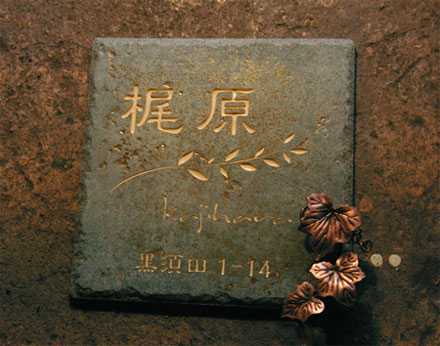 梶原
kajihara
黒須田1-14.